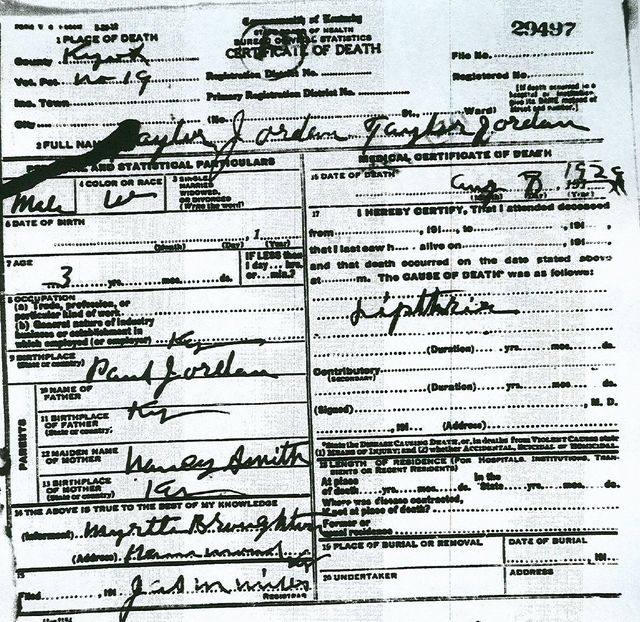 Commonwealth of Kentucky
STATE BOARD OF HEALTH
BUREAU OF VITAL STATISTICS
CERTIFICATE OF DEATH
29497
1 PLACE OF DEATH
County Knox
Vot. Pct. No 19
Inc. Town
City
Registration District No.
Primary Registration District No.
(No. St., Ward)
File No.
Registered No.
[If death occurred in a hospital or institution give its NAME instead of street and number.]
2 FULL NAME Taylor Jordan Taylor Jordan
PERSONAL AND STATISTICAL PARTICULARS
Male
4 COLOR OR RACE
W
5 SINGLE, MARRIED, WIDOWED, OR DIVORCED (Write the word)
6 DATE OF BIRTH
(Month) (Day) , 1 (Year)
7 AGE
3 yrs. mos. ds.
IF LESS than 1 day... hrs. or... min.?
8 OCCUPATION
(a) Trade, profession, or particular kind of work
(b) General nature of industry business or establishment in which employed (or employer)
9 BIRTHPLACE (State or country) Ky
PARENTS
10 NAME OF FATHER Paul Jordan
11 BIRTHPLACE OF FATHER (State or country) Ky
12 MAIDEN NAME OF MOTHER Nancy Smith
13 BIRTHPLACE OF MOTHER (State or country) Ky
14 THE ABOVE IS TRUE TO THE BEST OF MY KNOWLEDGE
(Informant) Myrtle
(Address) Ky
15
Filed , 191 REGISTRAR
MEDICAL CERTIFICATE OF DEATH
16 DATE OF DEATH
Aug 8 192
(Month) (Day) (Year)
17 I HEREBY CERTIFY, That I attended deceased
from , 191 , to , 191 ,
that I last saw h alive on , 191 ,
and that death occurred on the date stated above
at m. The CAUSE OF DEATH* was as follows:
(Duration) yrs. mos. ds.
Contributory (SECONDARY)
(Duration) yrs. mos. ds.
(Signed) , M. D.
, 191 (Address)
*State the DISEASE CAUSING DEATH, or, in deaths from VIOLENT CAUSES state (1) MEANS OF INJURY; and (2) whether ACCIDENTAL, SUICIDAL or HOMICIDAL.
18 LENGTH OF RESIDENCE (FOR HOSPITALS, INSTITUTIONS, TRANSIENTS OR RECENT RESIDENTS)
At place of death yrs. mos. ds. In the State yrs. mos. ds.
Where was disease contracted, if not at place of death?
Former or usual residence
19 PLACE OF BURIAL OR REMOVAL
DATE OF BURIAL
, 191
20 UNDERTAKER
ADDRESS